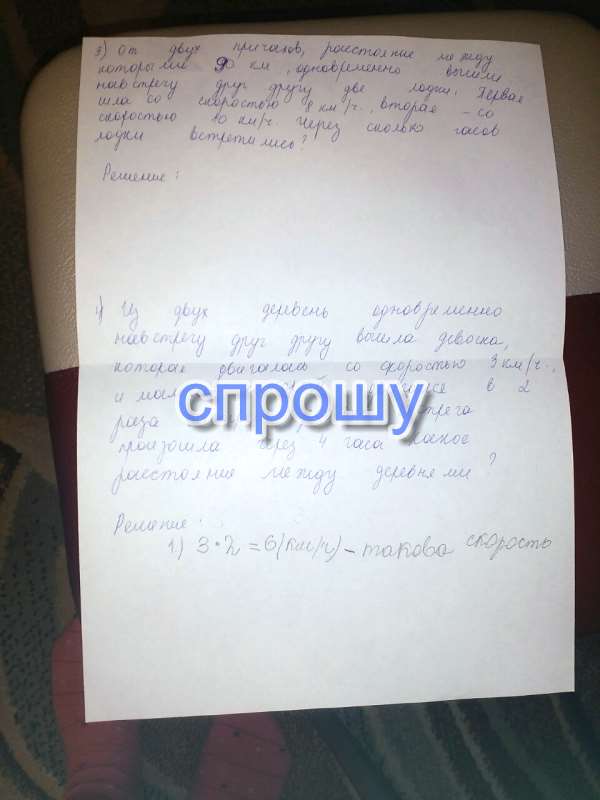 3) От двух причалов, расстояние между
которыми 90 км, одновременно вышли
навстречу друг другу две лодки. Первая
шла со скоростью 8 км/ч., вторая - со
скоростью 10 км/ч. Через сколько часов
лодки встретились?
Решение:
4) Из двух деревень одновременно
навстречу друг другу вышла девочка,
которая двигалась со скоростью 3 км/ч.,
и в 2
раза
спрошу
произошла через 4 часа. Какое
расстояние между деревнями?
Решение:
1) 3·2=6(км/ч)-такова скорость